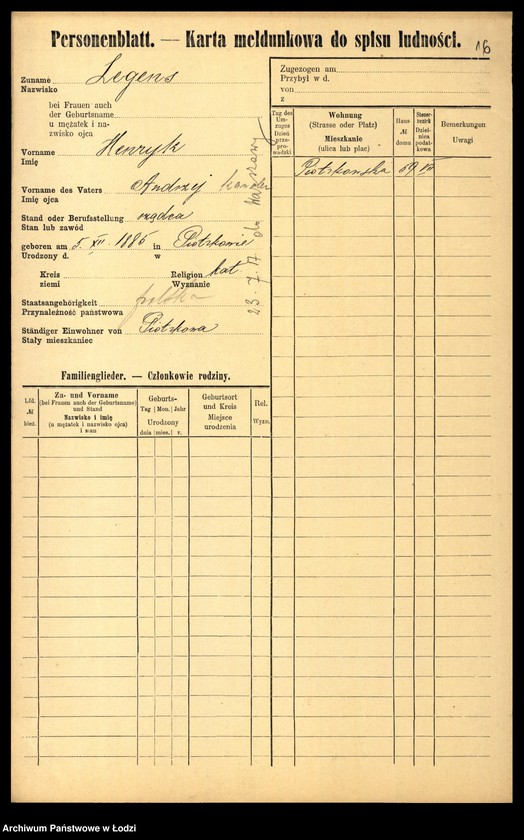 Personenblatt. — Karta meldunkowa do spisu ludności.
16
Zuname Legens
Nazwisko
bei Frauen auch
der Geburtsname
u mężatek i na-
zwisko ojca
Vorname Henryk
Imię
Vorname des Vaters Andrzej
Imię ojca
Stand oder Berufsstellung rządca
Stan lub zawód
geboren am 5. XII. 1886 in Piotrkowie
Urodzony d. w
Kreis Religion kat
ziemi Wyznanie
Staatsangehörigkeit polska
Przynależność państwowa
Ständiger Einwohner von Piotrkowa
Stały mieszkaniec
23. 7. 17 do Warszawy
Zugezogen am
Przybył w d.
von
z
Tag des Um-
zuges
Dzień
prze-
prowadzki
Wohnung
(Strasse oder Platz)
Mieszkanie
(ulica lub plac)
Haus
№
domu
Steuer-
bezirk
Dziel-
nica
podat-
kowa
Bemerkungen
Uwagi
Piotrkowska 59
Familienglieder. — Członkowie rodziny.
Lfd.
№
bież.
Zu- und Vorname
(bei Frauen auch der Geburtsname)
und Stand
Nazwisko i imię
(u mężatek i nazwisko ojca)
i stan
Geburts-
Tag | Mon. | Jahr
Urodzony
dnia | mies. | r.
Geburtsort
und Kreis
Miejsce
urodzenia
Rel.
Wyzn.
Archiwum Państwowe w Łodzi